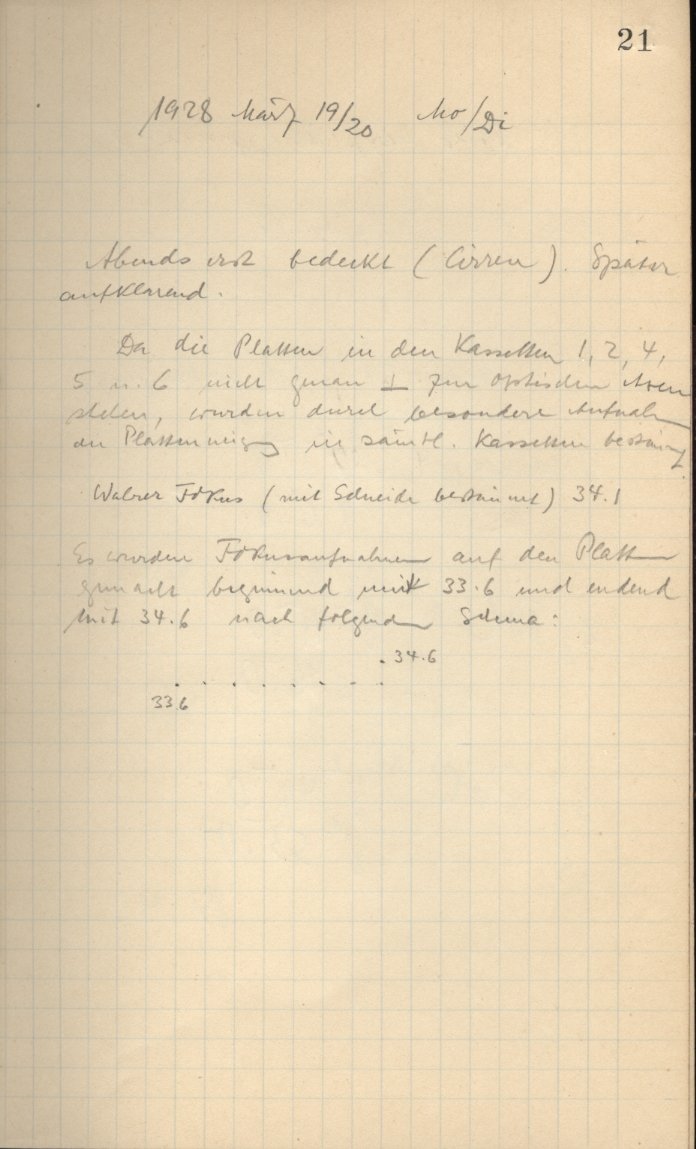 21
1928 März 19/20 Mo/Di
Abends erst bedeckt (Cirren). Später
aufklarend.
Da die Platten in den Kassetten 1, 2, 4,
5 u. 6 nicht genau ⊥ zur optischen Axe
stehen, wurden durch besondere Aufnahmen
die Plattenneigung in sämtl. Kassetten bestimmt
Wahrer Fokus (mit Schneide bestimmt) 34.1
Es wurden Fokusaufnahmen auf den Platten
gemacht beginnend mit 33.6 und endend
mit 34.6 nach folgendem Schema:
. 34.6
. . . . . . . .
33.6